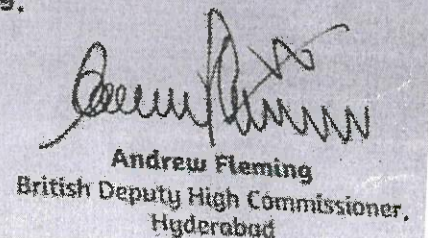 Andrew Fleming
British Deputy High Commissioner,
Hyderabad